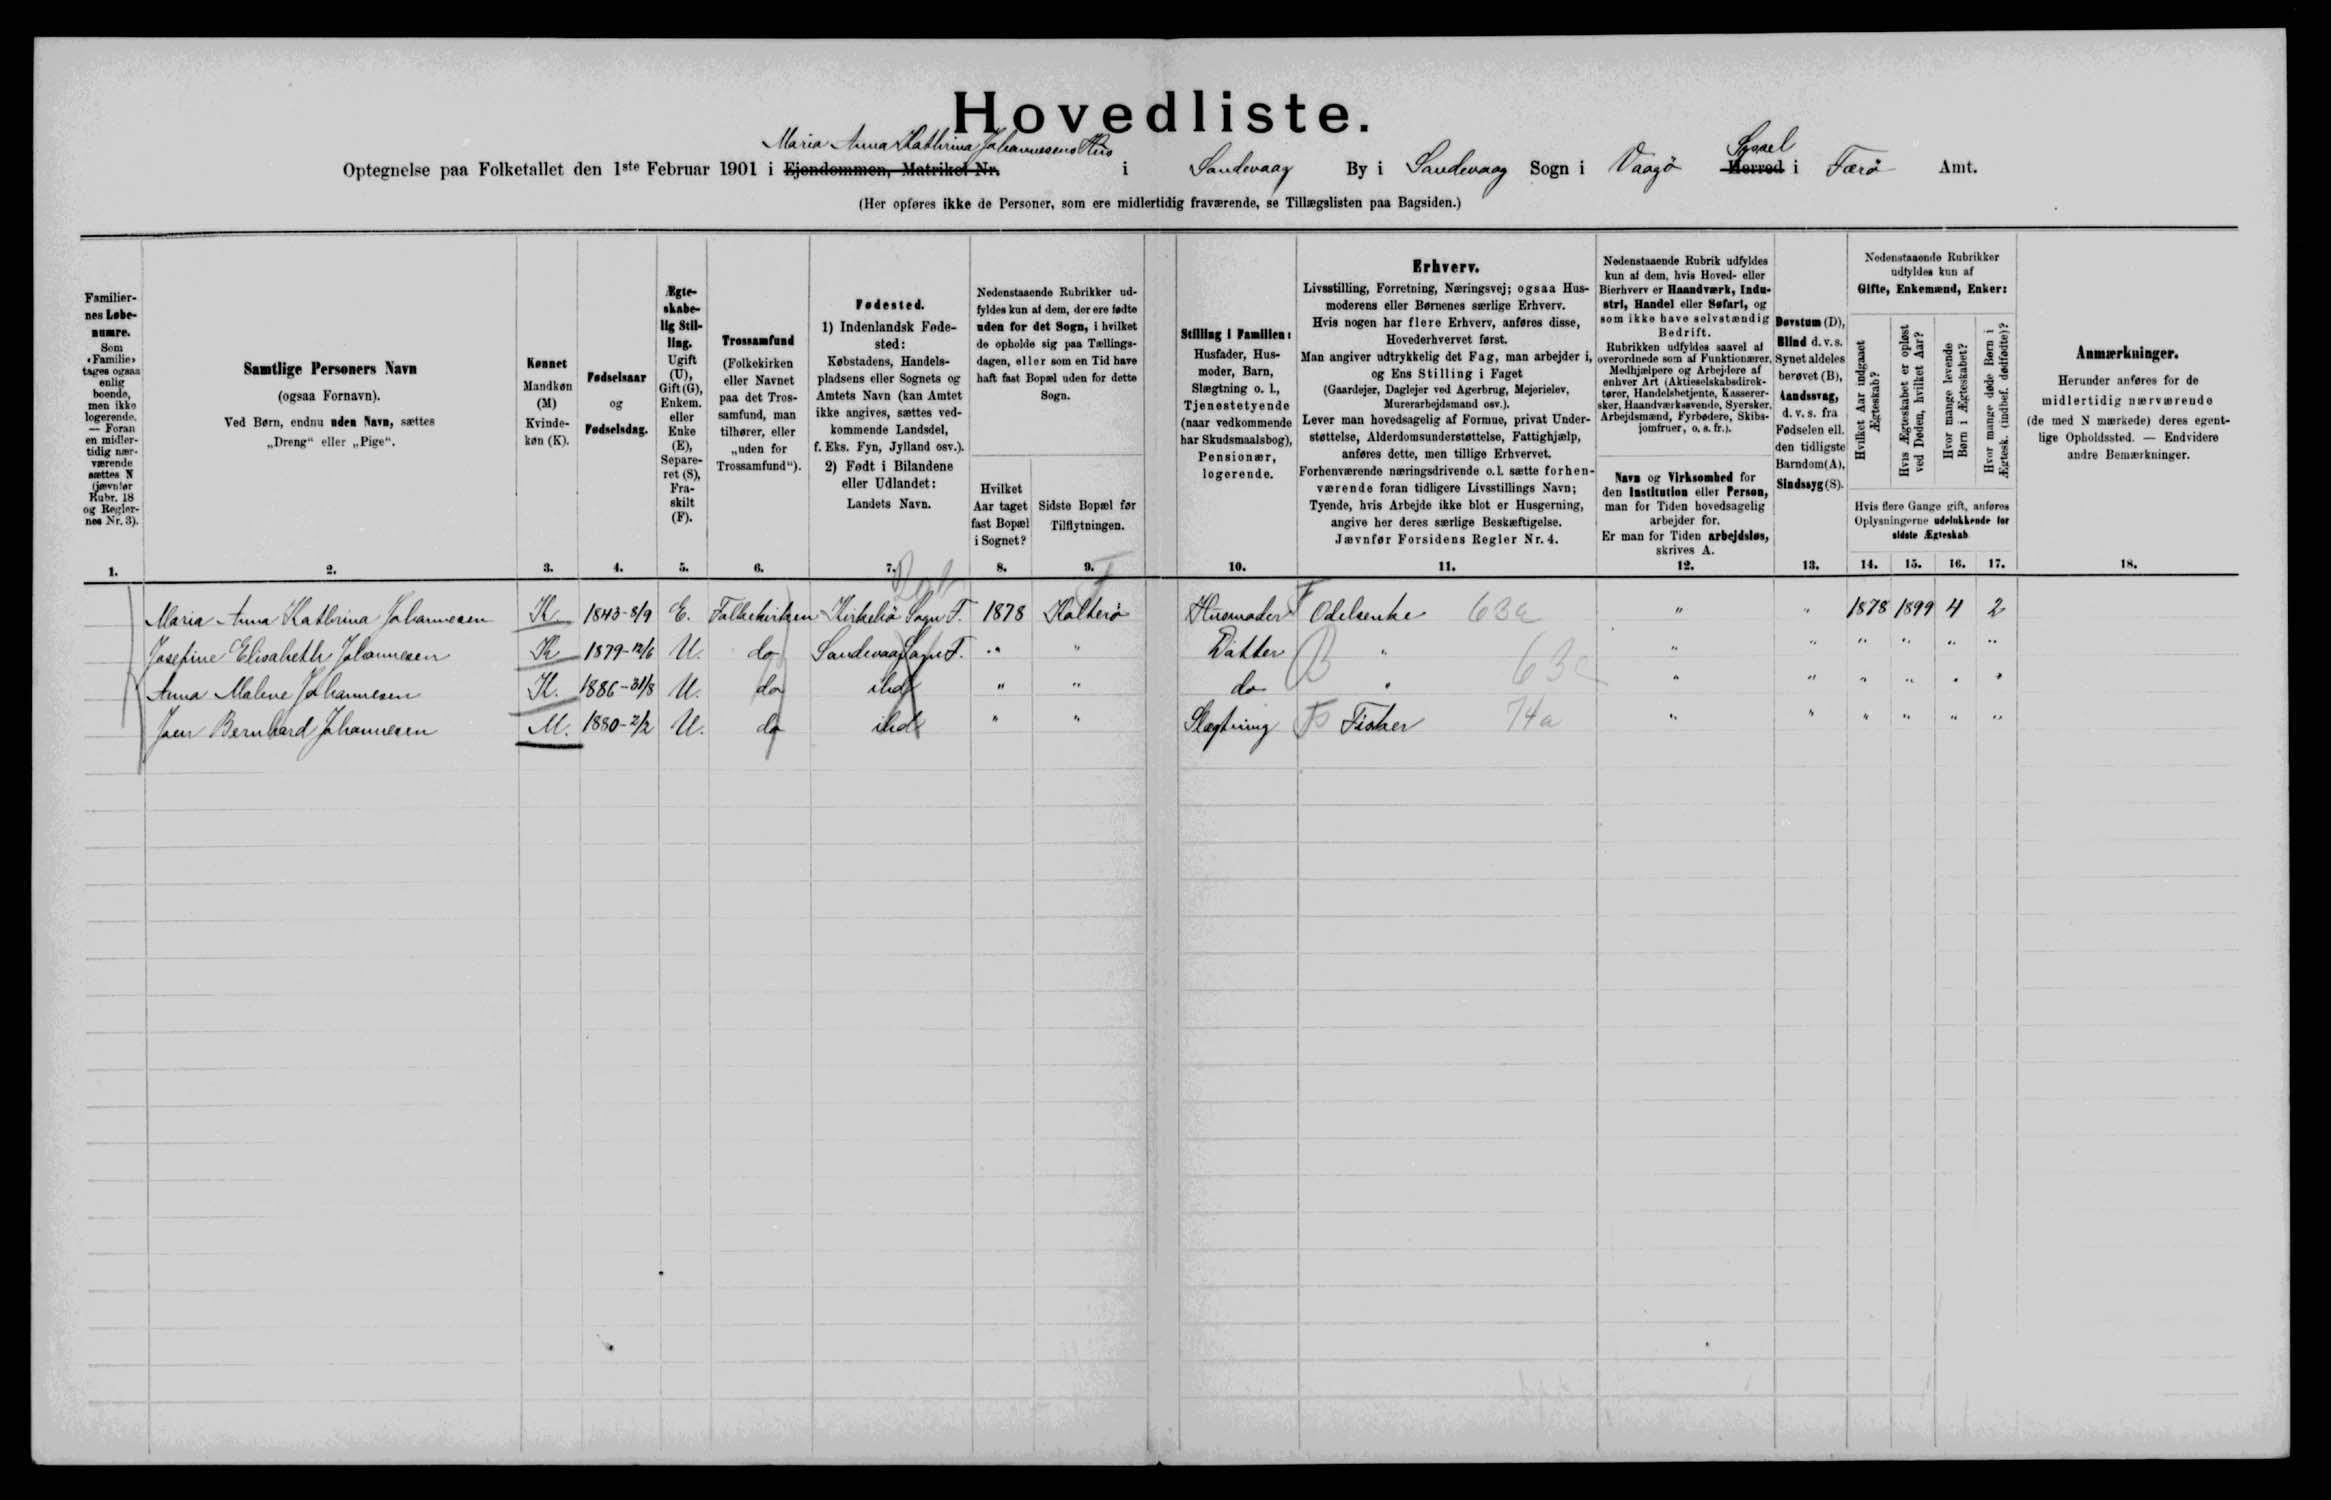 Hovedliste.
Maria Anna Kathrina Johannesens Hus
Syssel
Optegnelse paa Folketallet den 1ste Februar 1901 i Ejendommen, Matrikel Nr. i Sandevaag By i Sandevaag Sogn i Vaagø Herred i Færø Amt.
(Her opføres ikke de Personer, som ere midlertidig fraværende, se Tillægslisten paa Bagsiden.)
Familier-
nes Løbe-
numre.
Som
«Familie»
tages ogsaa
enlig
boende,
men ikke
logerende.
— Foran
en midler-
tidig nær-
værende
sættes N
(jævnfør
Rubr. 18
og Regler-
nes Nr. 3).
1.
Samtlige Personers Navn
(ogsaa Fornavn).
Ved Børn, endnu uden Navn, sættes
„Dreng“ eller „Pige“.
2.
Kønnet
Mandkøn
(M)
Kvinde-
køn (K).
3.
Fødselsaar
og
Fødselsdag.
4.
Ægte-
skabe-
lig Stil-
ling.
Ugift
(U),
Gift (G),
Enkem.
eller
Enke
(E),
Separe-
ret (S),
Fra-
skilt
(F).
5.
Trossamfund
(Folkekirken
eller Navnet
paa det Tros-
samfund, man
tilhører, eller
„uden for
Trossamfund“).
6.
Fødested.
1) Indenlandsk Føde-
sted:
Købstadens, Handels-
pladsens eller Sognets og
Amtets Navn (kan Amtet
ikke angives, sættes ved-
kommende Landsdel,
f. Eks. Fyn, Jylland osv.).
2) Født i Bilandene
eller Udlandet:
Landets Navn.
7.
Nedenstaaende Rubrikker ud-
fyldes kun af dem, der ere fødte
uden for det Sogn, i hvilket
de opholde sig paa Tællings-
dagen, eller som en Tid have
haft fast Bopæl uden for dette
Sogn.
Hvilket
Aar taget
fast Bopæl
i Sognet?
8.
Sidste Bopæl før
Tilflytningen.
9.
Stilling i Familien:
Husfader, Hus-
moder, Barn,
Slægtning o. l.,
Tjenestetyende
(naar vedkommende
har Skudsmaalsbog),
Pensionær,
logerende.
10.
Erhverv.
Livsstilling, Forretning, Næringsvej; ogsaa Hus-
moderens eller Børnenes særlige Erhverv.
Hvis nogen har flere Erhverv, anføres disse,
Hovederhvervet først.
Man angiver udtrykkelig det Fag, man arbejder i,
og Ens Stilling i Faget
(Gaardejer, Daglejer ved Agerbrug, Mejerielev,
Murerarbejdsmand osv.).
Lever man hovedsagelig af Formue, privat Under-
støttelse, Alderdomsunderstøttelse, Fattighjælp,
anføres dette, men tillige Erhvervet.
Forhenværende næringsdrivende o.l. sætte forhen-
værende foran tidligere Livsstillings Navn;
Tyende, hvis Arbejde ikke blot er Husgerning,
angive her deres særlige Beskæftigelse.
Jævnfør Forsidens Regler Nr. 4.
11.
Nedenstaaende Rubrik udfyldes
kun af dem, hvis Hoved- eller
Bierhverv er Haandværk, Indu-
stri, Handel eller Søfart, og
som ikke have selvstændig
Bedrift.
Rubrikken udfyldes saavel af
overordnede som af Funktionærer,
Medhjælpere og Arbejdere af
enhver Art (Aktieselskabsdirek-
tører, Handelsbetjente, Kasserer-
sker, Haandværkssvende, Syersker,
Arbejdsmænd, Fyrbødere, Skibs-
jomfruer, o. s. fr.).
Navn og Virksomhed for
den Institution eller Person,
man for Tiden hovedsagelig
arbejder for.
Er man for Tiden arbejdsløs,
skrives A.
12.
Døvstum (D),
Blind d. v. s.
Synet aldeles
berøvet (B),
Aandssvag,
d. v. s. fra
Fødselen ell.
den tidligste
Barndom (A),
Sindssyg (S).
13.
Nedenstaaende Rubrikker
udfyldes kun af
Gifte, Enkemænd, Enker:
Hvilket Aar indgaaet
Ægteskab?
Hvis Ægteskabet er opløst
ved Døden, hvilket Aar?
Hvor mange levende
Børn i Ægteskabet?
Hvor mange døde Børn i
Ægtesk. (indbef. dødfødte)?
Hvis flere Gange gift, anføres
Oplysningerne udelukkende for
sidste Ægteskab
14. 15. 16. 17.
Anmærkninger.
Herunder anføres for de
midlertidig nærværende
(de med N mærkede) deres egent-
lige Opholdssted. — Endvidere
andre Bemærkninger.
18.
Maria Anna Kathrina Johannesen K. 1843-8/9 E. Folkekirken Kirkebø Sogn F. 1878 Kolterø Husmoder F Odelsenke 63a " " 1878 1899 4 2
Josefine Elisabeth Johannesen K 1879-12/6 U. do Sandevaag Sogn F. " " Datter B " 63c " " " " " "
Anna Malene Johannesen K. 1886-31/8 U. do ibd " " do " " " " " " "
Joen Bernhard Johannesen M. 1880-2/2 U. do ibd " " Slægtning Fisker 74a " " " " " "